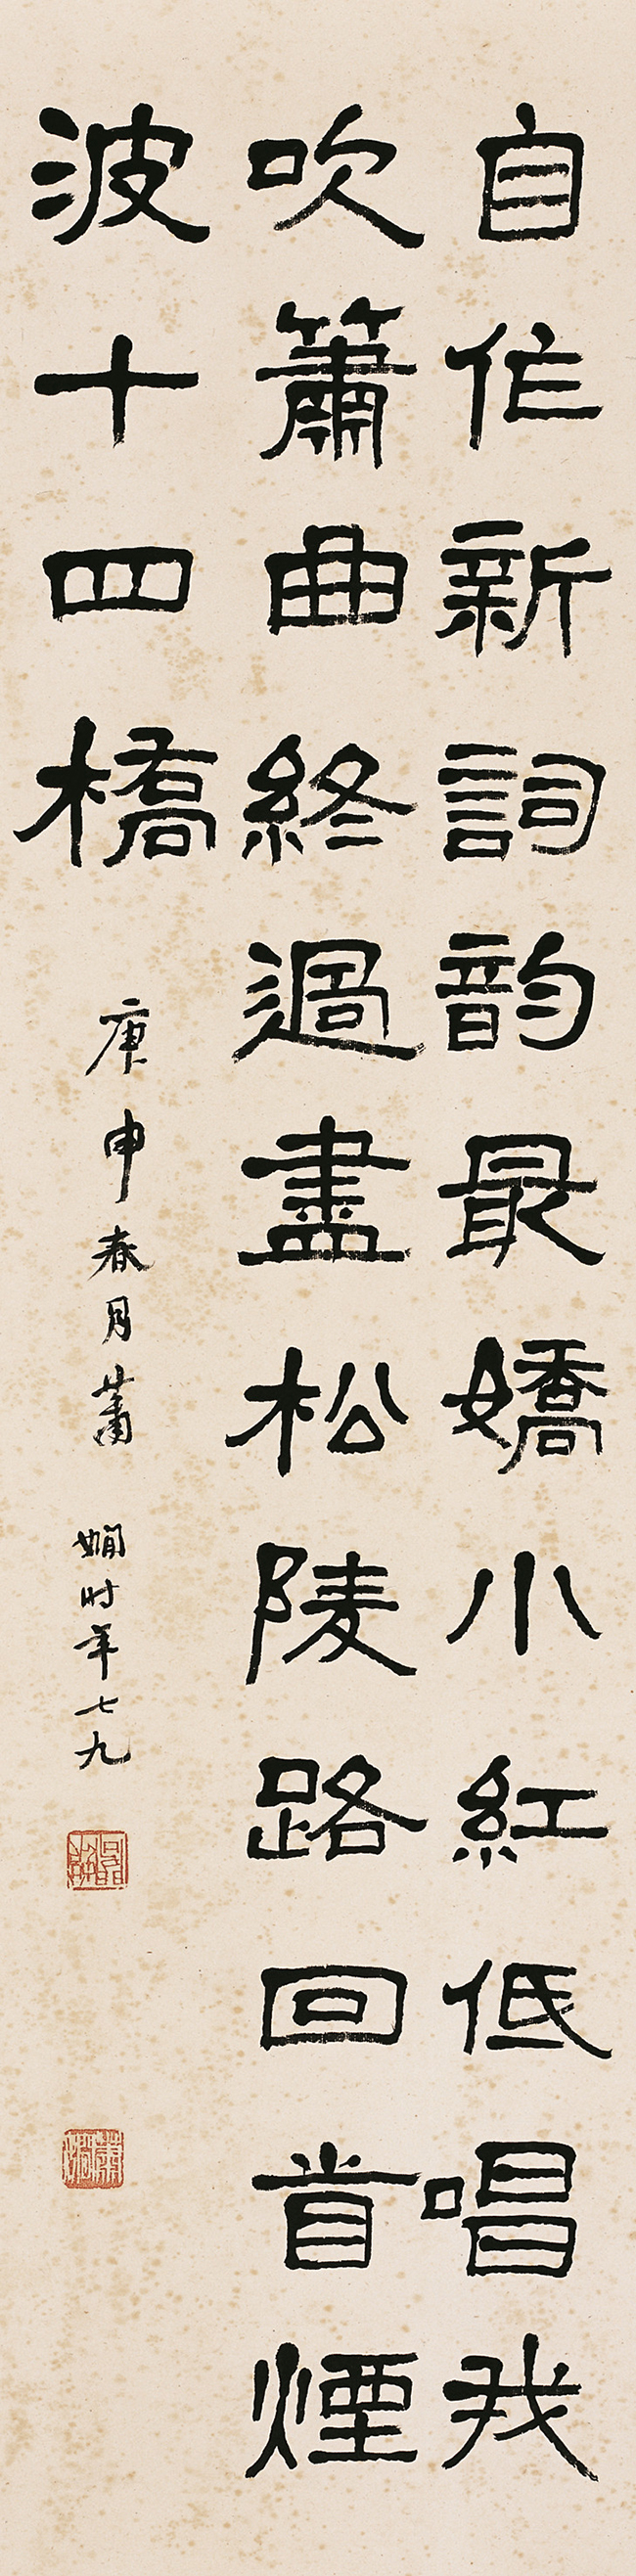 自作新詞韵最嬌小紅低唱我
吹簫曲終過盡松陵路回首煙
波十四橋
庚申春月蕭
嫻时年七九